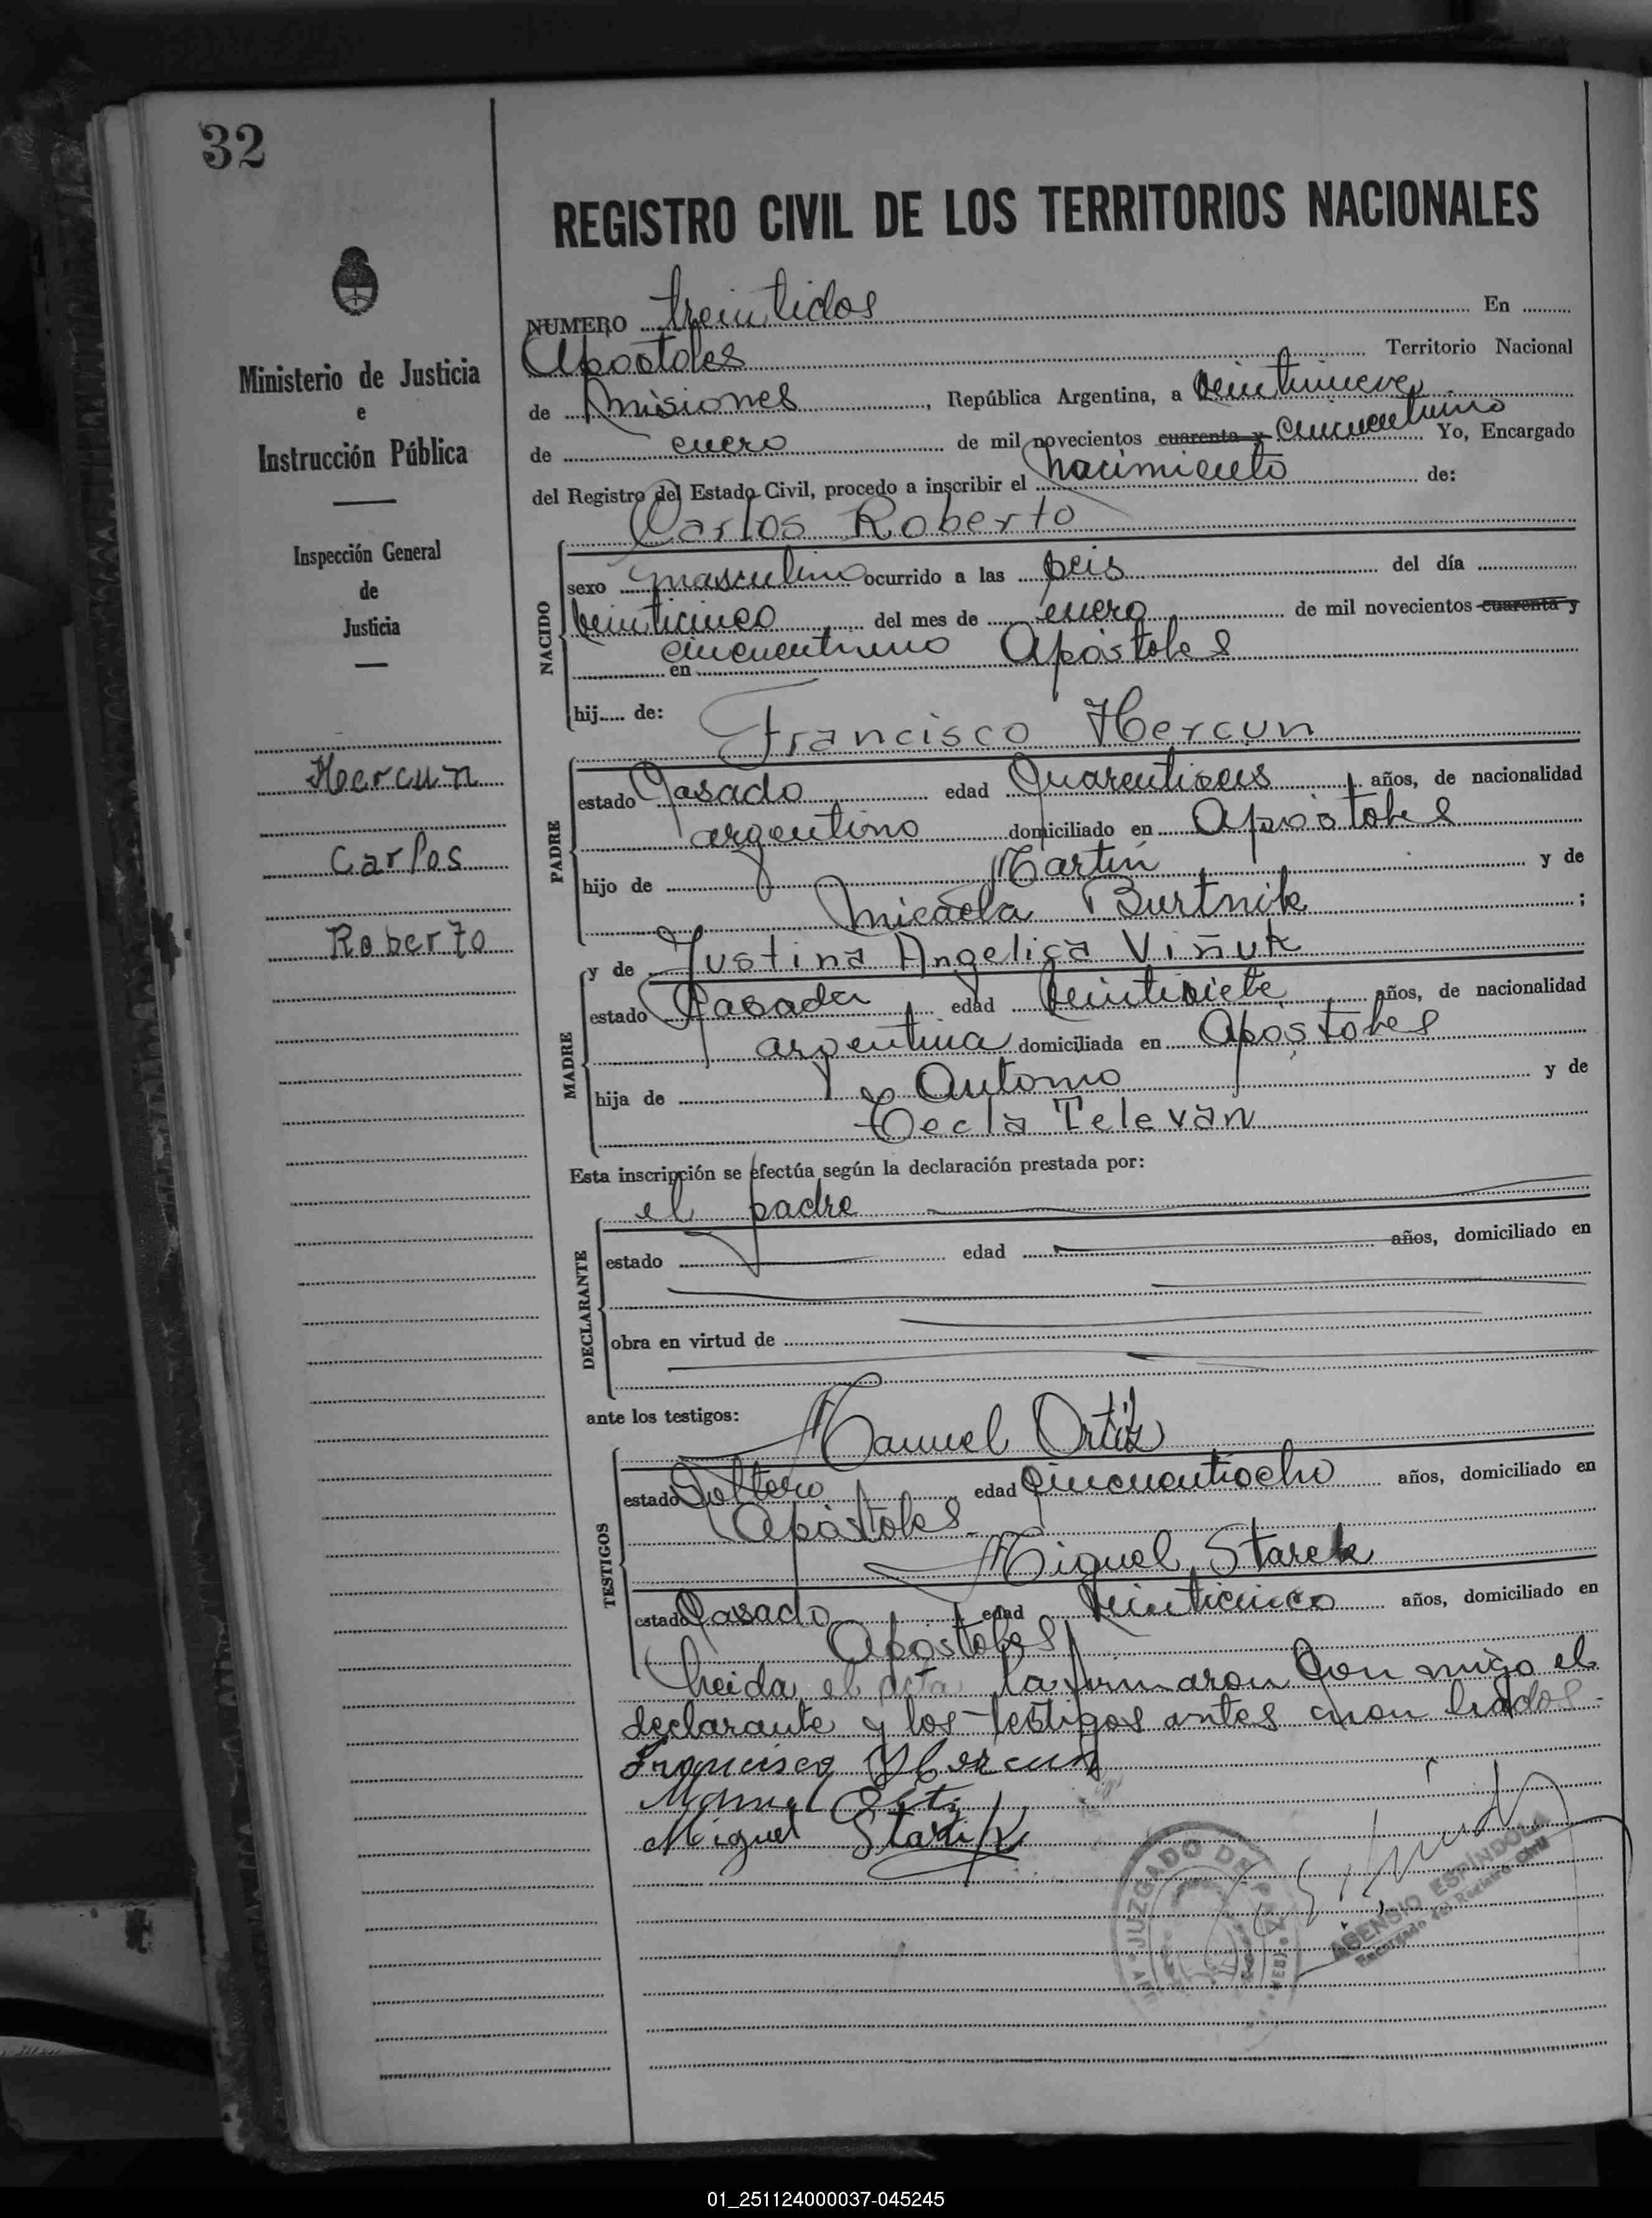 32
REGISTRO CIVIL DE LOS TERRITORIOS NACIONALES
Ministerio de Justicia
e
Instrucción Pública
Inspección General
de
Justicia
Hercun
Carlos
Roberto
NUMERO treintidos En
Apóstoles Territorio Nacional
de Misiones, República Argentina, a veintinueve
de enero de mil novecientos cuarenta y cincuentiuno Yo, Encargado
del Registro del Estado Civil, procedo a inscribir el nacimiento de:
Carlos Roberto
NACIDO
sexo masculino ocurrido a las seis del día
veinticinco del mes de enero de mil novecientos cuarenta y
cincuentiuno en Apóstoles
hij..... de:
Francisco Hercun
PADRE
estado Casado edad Cuarentiseis años, de nacionalidad
argentino domiciliado en Apóstoles
hijo de Martín y de
Micaela Burtnik ;
y de Justina Angelica Viñuk
MADRE
estado Casada edad veintisiete años, de nacionalidad
argentina domiciliada en Apóstoles
hija de Antonio y de
Tecla Televan
Esta inscripción se efectúa según la declaración prestada por:
el padre
DECLARANTE
estado edad años, domiciliado en
obra en virtud de
ante los testigos:
Manuel Ortíz
TESTIGOS
estado Soltero edad Cincuentiocho años, domiciliado en
Apóstoles
Miguel Starek
estado Casado edad veinticinco años, domiciliado en
Apóstoles
Leida el acta la firmaron Con migo el
declarante y los testigos antes mon
Francisco Hercun
Manuel Ortiz
Miguel
JUZGADO DE PAZ
ASENSIO ESPÍNDOLA
Encargado del Registro Civil
01_251124000037-045245